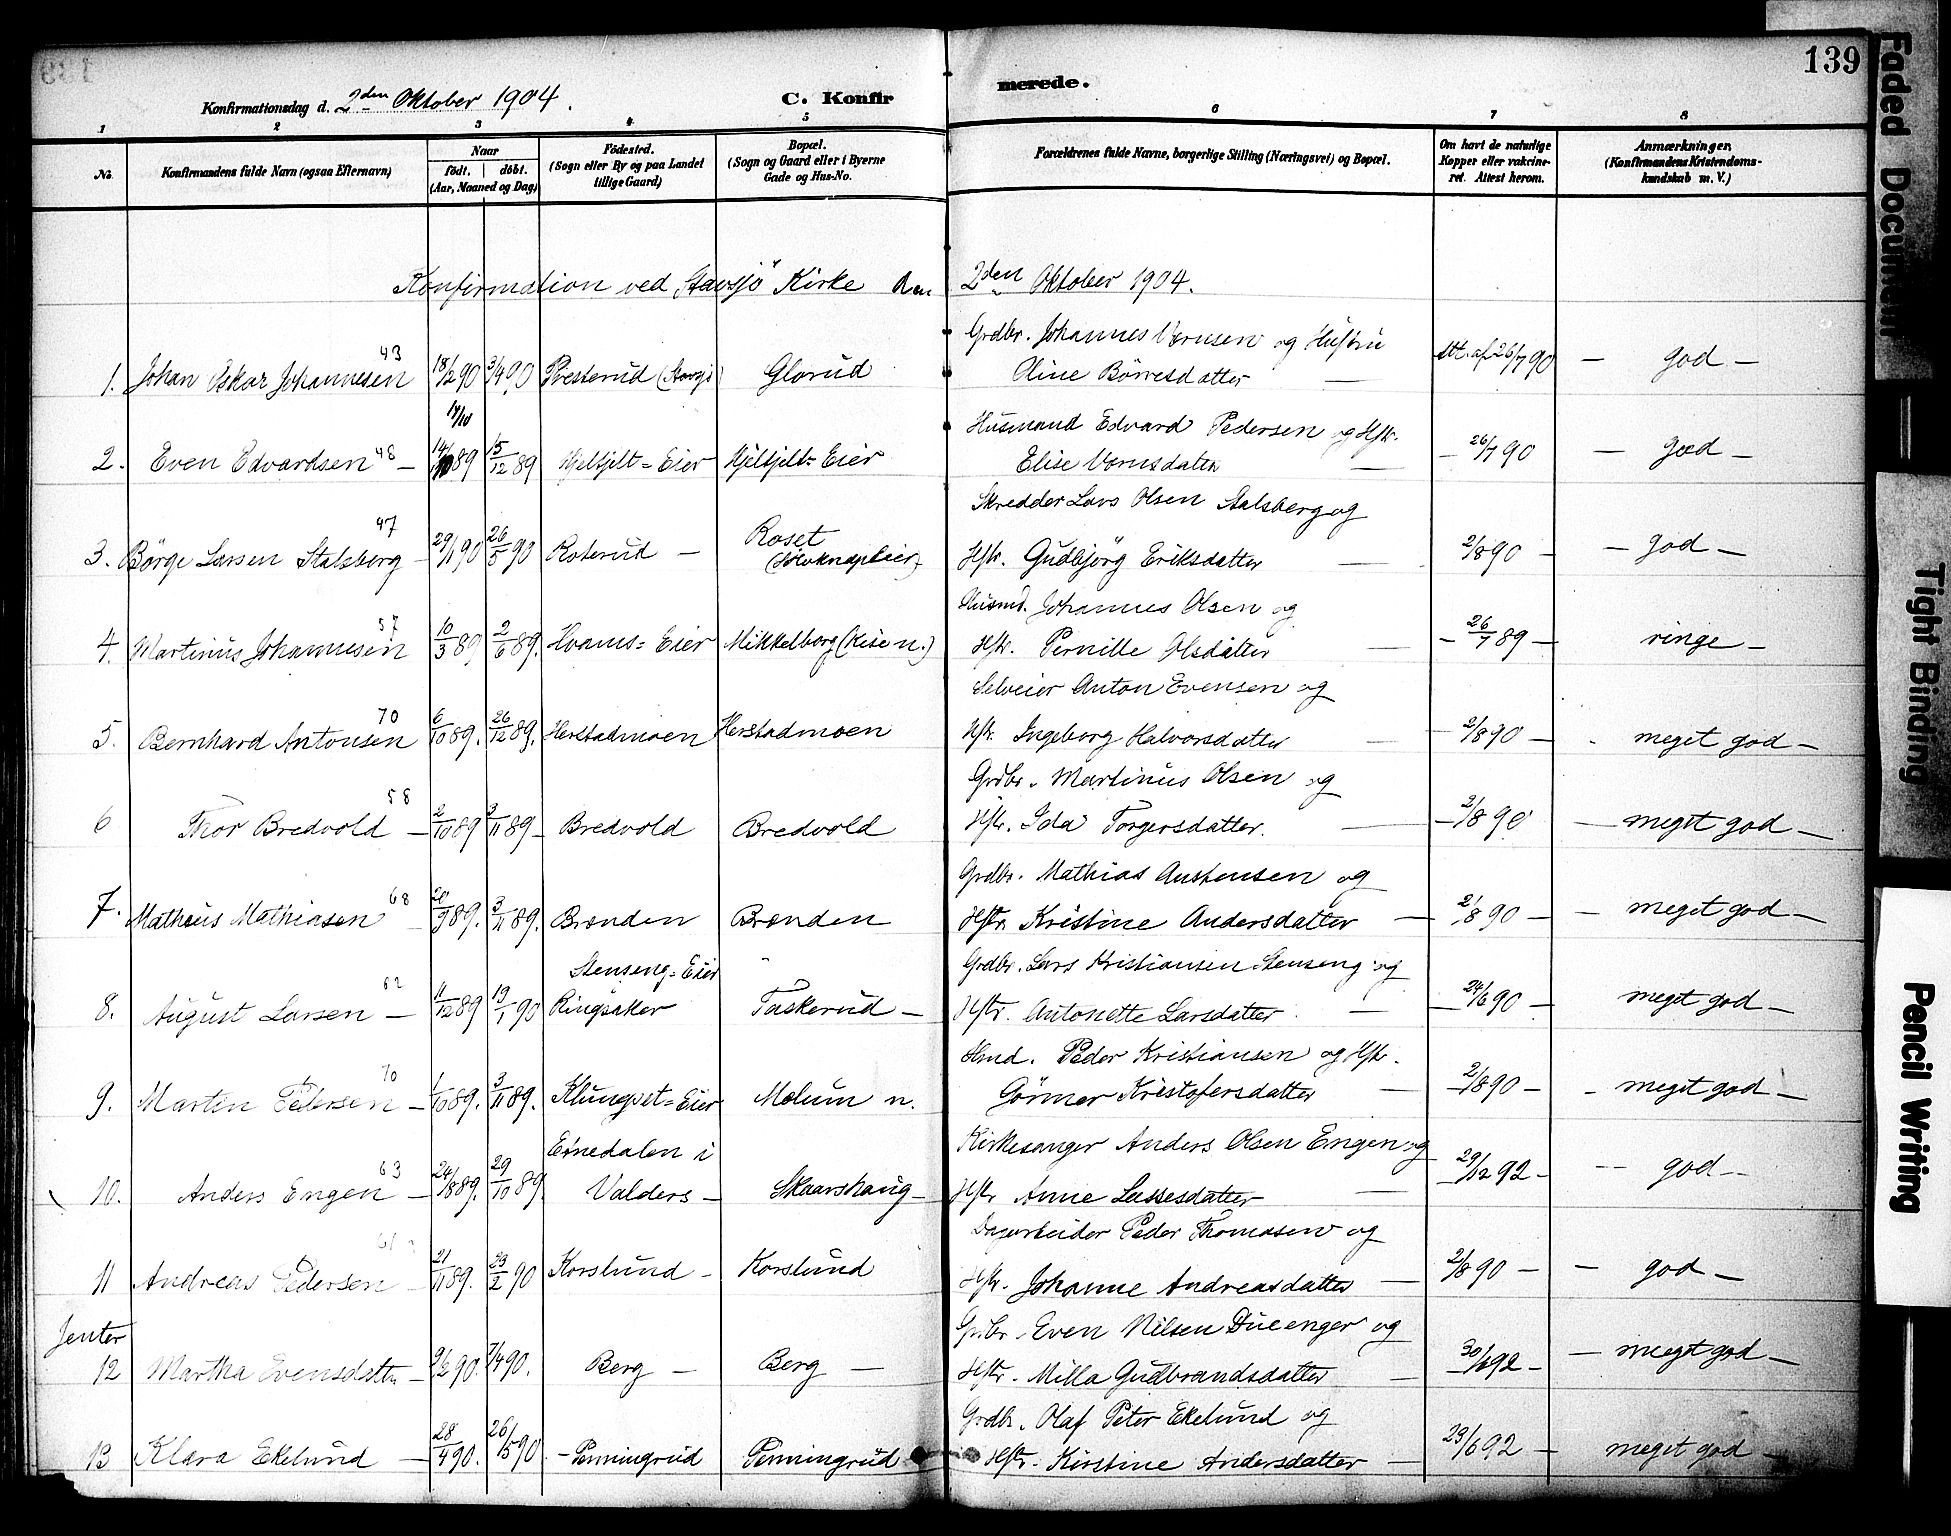 139
Konfirmationsdag d. 2den Oktober 1904.
C. Konfirmerede.
1 2 3 4 5 6 7 8
No.
Konfirmandens fulde Navn (ogsaa Efternavn)
Naar
født. døbt.
(Aar, Maaned og Dag)
Fødested.
(Sogn eller By og paa Landet
tillige Gaard)
Bopæl.
(Sogn og Gaard eller i Byerne
Gade og Hus-No.
Forældrenes fulde Navne, borgerlige Stilling (Næringsvei) og Bopæl.
Om havt de naturlige
Kopper eller vakcine-
ret. Attest herom.
Anmærkninger.
(Konfirmandens Kristendoms-
kundskab m. V.)
Konfirmation ved Stavsjö Kirke den 2den Oktober 1904.
43 Grdbr. Johannes Vernsen og Hustru
1. Johan Oskar Johannesen 18/2 90 3/4 90 Presterud (Stavsjö) Glorud Oline Börresdatter — Att. af 26/7 90 — god —
14/10 Husmand Edvard Pedersen og Hstr.
2. Even Edvardsen 48 — 89 15/12 89 Hjeltjelt = Eier Hjeltjelt = Eier Elise — 26/7 90 — god —
47 Skredder Lars Olsen Stalsberg og
3. Börge Larsen Stalsberg — 29/1 90 26/5 90 Roterud — Roset Hstr. Gudbjörg Eriksdatter — 2/8 90 — god —
57 Husmd. Johannes Olsen og
4. Martinus Johannesen 10/3 89 2/6 89. Hvams = Eier Mikkelborg (Kise n.) Hstr. Pernille Olsdatter — 26/7 89 — ringe —
70 Selveier Anton Evensen og
5. Bernhard Antonsen 6/10 89. 26/12 89. Herstadmoen Herstadmoen Hstr. Ingeborg Halvorsdatter — 2/8 90 — meget god —
58 Grdbr. Martinus Olsen og
6 Thor Bredvold — 2/10 89 3/11 89 — Bredvold Bredvold Hstr. Ida Torgersdatter. — 2/8 90 — meget god —
68 Grdbr. Mathias Austensen og
7. Matheus Mathiasen 20/9 89. 3/11 89. Brenden Brenden Hstr. Kristine Andersdatter — 2/8 90 — meget god —
62 Stenseng = Eier Grdbr. Lars Kristiansen Stenseng og
8. August Larsen — 11/12 89 19/1 90 Ringsaker Taskerud — Hstr. Antonette Larsdatter. — 24/6 90 — meget god —
70 Hmd. Peder Kristiansen og Hstr.
9. Martin Pedersen — 1/10 89. 3/11 89. Klungvet = Eier Melum n. Görmor Kristofersdatter — 2/8 90 — meget god —
63 i Kirkesanger Anders Olsen Engen og
10. Anders Engen — 24/8 89. 29/10 89 Valders — Skaarshaug — Hstr Anne Lassesdatter — 29/12 92 — god —
Dagarbeider Peder Thomasen og
11 Andreas Pedersen — 21/11 89. 23/2 90 Korslund — Korslund Hstr. Johanne Andreasdatter — 2/8 90 — god —
Jenter Even Nilsen og
12 Martha Evensdatter — 9/2 90. 7/4 90. Berg — Berg — Hstr. Milla Gudbrandsdatter — 30/6 92 — meget god —
Grdbr. Olaf Peter Ekelund og
13 Klara Ekelund — 28/4 90. 26/5 90 — Penningrud Penningrud Hstr. Kirstine Andersdatter — 29/6 92 — meget god —
Faded Document
Tight Binding
Pencil Writing